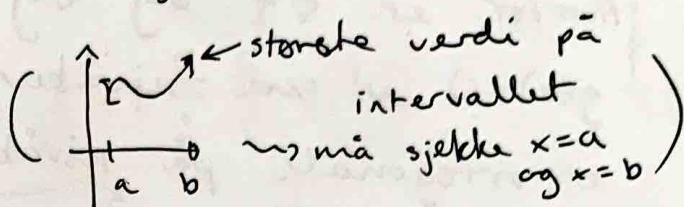 største verdi på
intervallet
må sjekke x=a
og x=b
a b